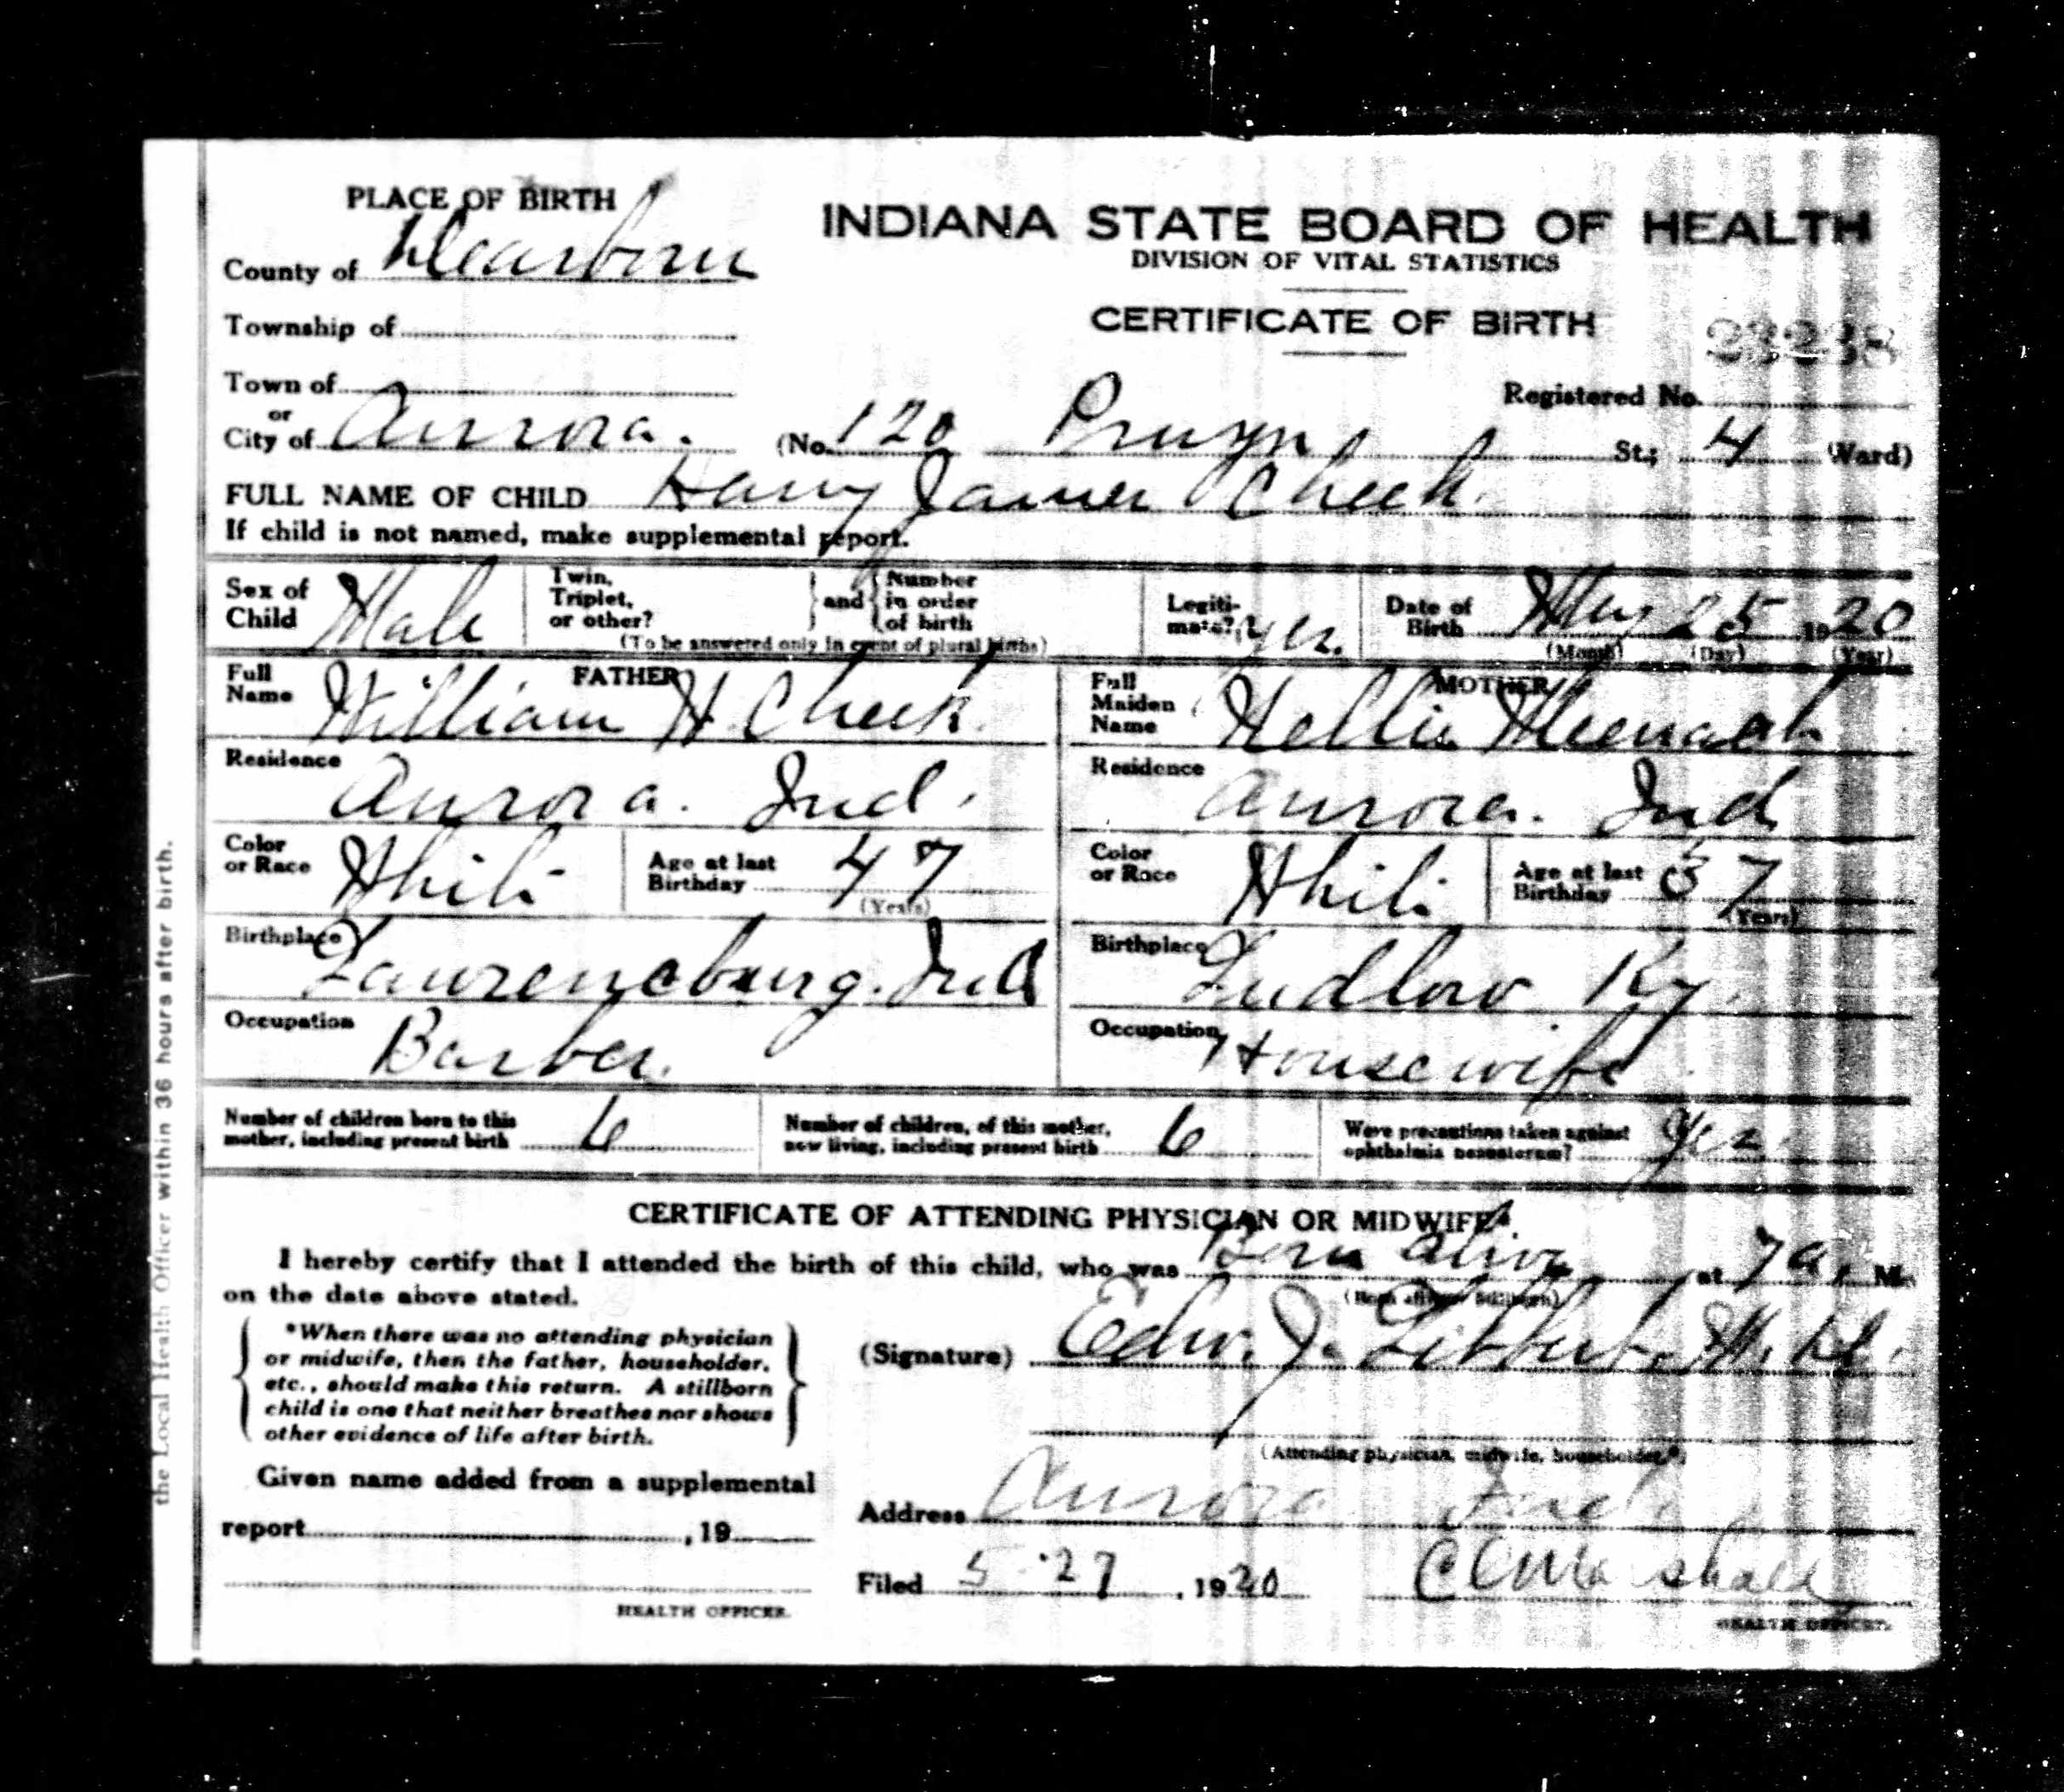 PLACE OF BIRTH
County of Dearborn
Township of
Town of
or
City of Aurora.
INDIANA STATE BOARD OF HEALTH
DIVISION OF VITAL STATISTICS
CERTIFICATE OF BIRTH
23238
Registered No.
(No. 120 Pruyn St.; 4 Ward)
FULL NAME OF CHILD Harry James Cheek.
If child is not named, make supplemental report.
Sex of Child Male
Twin, Triplet, or other? and Number in order of birth
(To be answered only in event of plural births)
Legitimate? yes.
Date of Birth May 25 1920
(Month) (Day) (Year)
FATHER
Full Name William H. Cheek.
Residence Aurora. Ind.
Color or Race White
Age at last Birthday 47
(Years)
Birthplace Lawrenceburg. Ind
Occupation Barber.
MOTHER
Full Maiden Name Nellie
Residence Aurora. Ind
Color or Race White
Age at last Birthday 37
(Years)
Birthplace Ludlow Ky.
Occupation Housewife
Number of children born to this mother, including present birth 6
Number of children, of this mother, now living, including present birth 6
Were precautions taken against ophthalmia neonatorum? Yes.
CERTIFICATE OF ATTENDING PHYSICIAN OR MIDWIFE*
I hereby certify that I attended the birth of this child, who was Born alive at 7 a. M.
(Born alive or Stillborn)
on the date above stated.
*When there was no attending physician
or midwife, then the father, householder,
etc., should make this return. A stillborn
child is one that neither breathes nor shows
other evidence of life after birth.
(Signature) Edw. J. Libbert. M.D.
(Attending physician, midwife, householder.*)
Given name added from a supplemental
report , 19
HEALTH OFFICER.
Address Aurora Ind
Filed 5-27, 1920 Marshall
HEALTH OFFICER.
the Local Health Officer within 36 hours after birth.